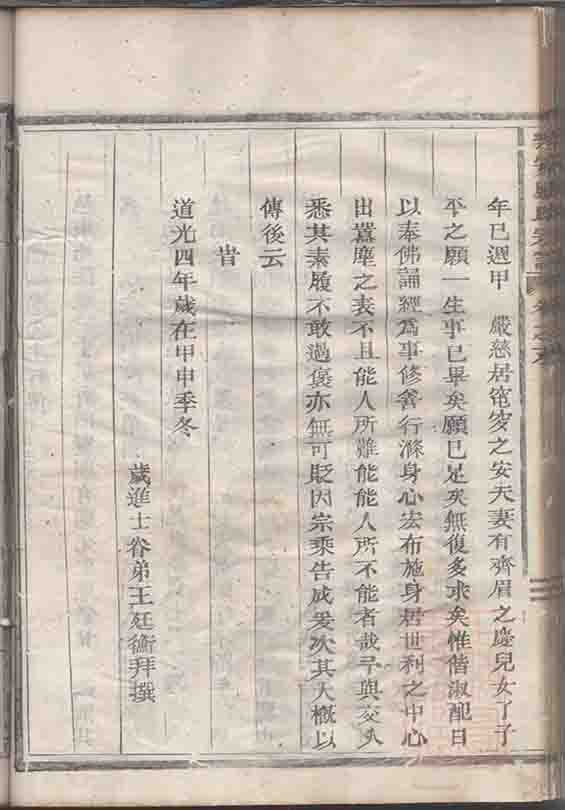 年已週甲　嚴慈居窀穸之安夫妻有齊眉之慶兒女了子
平之願一生事已畢矣願已足矣無復多求矣惟偕淑配日
以奉佛誦經為事修善行滌身心宏布施身居世利之中心
出囂塵之表不且能人所難能能人所不能者哉予與交久
悉其素履不敢過褒亦無可貶因宗乘告成爰次其大概以
傳後云
旹
道光四年歲在甲申季冬
歲進士眷弟王廷衡拜撰